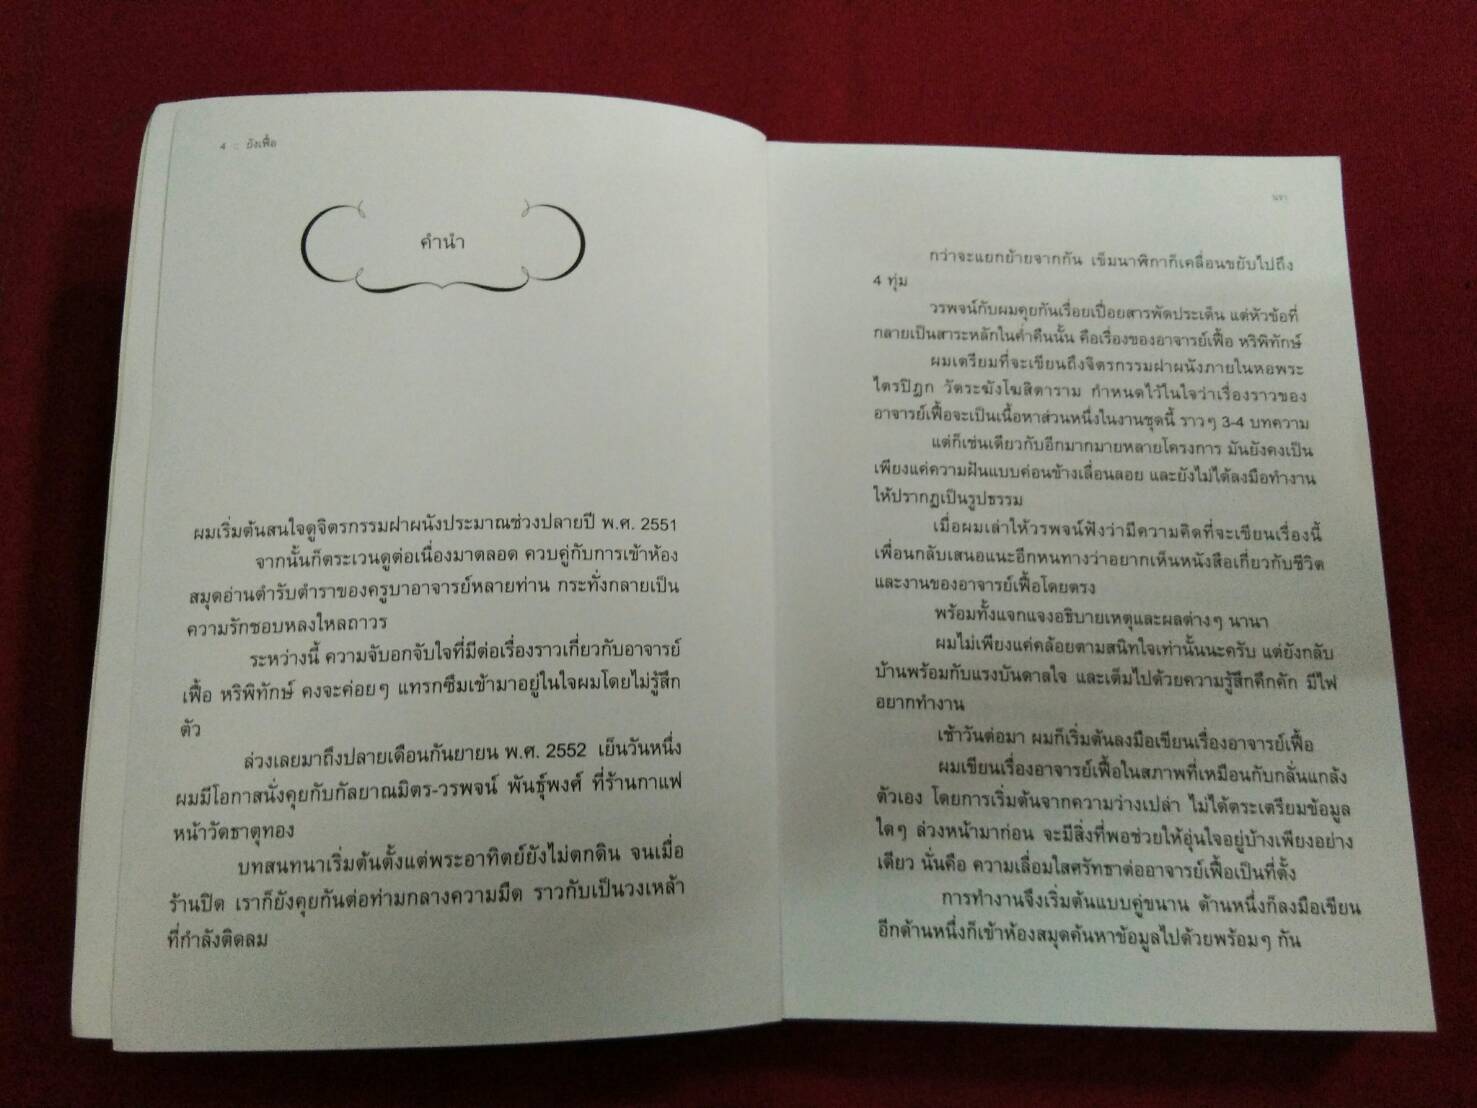 4 :: ยังเฟื้อ
คำนำ
ผมเริ่มต้นสนใจดูจิตรกรรมฝาผนังประมาณช่วงปลายปี พ.ศ. 2551
จากนั้นก็ตระเวนดูต่อเนื่องมาตลอด ควบคู่กับการเข้าห้อง
สมุดอ่านตำรับตำราของครูบาอาจารย์หลายท่าน กระทั่งกลายเป็น
ความรักชอบหลงใหลถาวร
ระหว่างนี้ ความจับอกจับใจที่มีต่อเรื่องราวเกี่ยวกับอาจารย์
เฟื้อ หริพิทักษ์ คงจะค่อยๆ แทรกซึมเข้ามาอยู่ในใจผมโดยไม่รู้สึก
ตัว
ล่วงเลยมาถึงปลายเดือนกันยายน พ.ศ. 2552 เย็นวันหนึ่ง
ผมมีโอกาสนั่งคุยกับกัลยาณมิตร-วรพจน์ พันธุ์พงศ์ ที่ร้านกาแฟ
หน้าวัดธาตุทอง
บทสนทนาเริ่มต้นตั้งแต่พระอาทิตย์ยังไม่ตกดิน จนเมื่อ
ร้านปิด เราก็ยังคุยกันต่อท่ามกลางความมืด ราวกับเป็นวงเหล้า
ที่กำลังติดลม
นรา
กว่าจะแยกย้ายจากกัน เข็มนาฬิกาก็เคลื่อนขยับไปถึง
4 ทุ่ม
วรพจน์กับผมคุยกันเรื่อยเปื่อยสารพัดประเด็น แต่หัวข้อที่
กลายเป็นสาระหลักในค่ำคืนนั้น คือเรื่องของอาจารย์เฟื้อ หริพิทักษ์
ผมเตรียมที่จะเขียนถึงจิตรกรรมฝาผนังภายในหอพระ
ไตรปิฎก วัดระฆังโฆสิตาราม กำหนดไว้ในใจว่าเรื่องราวของ
อาจารย์เฟื้อจะเป็นเนื้อหาส่วนหนึ่งในงานชุดนี้ ราวๆ 3-4 บทความ
แต่ก็เช่นเดียวกับอีกมากมายหลายโครงการ มันยังคงเป็น
เพียงแค่ความฝันแบบค่อนข้างเลื่อนลอย และยังไม่ได้ลงมือทำงาน
ให้ปรากฏเป็นรูปธรรม
เมื่อผมเล่าให้วรพจน์ฟังว่ามีความคิดที่จะเขียนเรื่องนี้
เพื่อนกลับเสนอแนะอีกหนทางว่าอยากเห็นหนังสือเกี่ยวกับชีวิต
และงานของอาจารย์เฟื้อโดยตรง
พร้อมทั้งแจกแจงอธิบายเหตุและผลต่างๆ นานา
ผมไม่เพียงแค่คล้อยตามสนิทใจเท่านั้นนะครับ แต่ยังกลับ
บ้านพร้อมกับแรงบันดาลใจ และเต็มไปด้วยความรู้สึกคึกคัก มีไฟ
อยากทำงาน
เช้าวันต่อมา ผมก็เริ่มต้นลงมือเขียนเรื่องอาจารย์เฟื้อ
ผมเขียนเรื่องอาจารย์เฟื้อในสภาพที่เหมือนกับกลั่นแกล้ง
ตัวเอง โดยการเริ่มต้นจากความว่างเปล่า ไม่ได้ตระเตรียมข้อมูล
ใดๆ ล่วงหน้ามาก่อน จะมีสิ่งที่พอช่วยให้อุ่นใจอยู่บ้างเพียงอย่าง
เดียว นั่นคือ ความเลื่อมใสศรัทธาต่ออาจารย์เฟื้อเป็นที่ตั้ง
การทำงานจึงเริ่มต้นแบบคู่ขนาน ด้านหนึ่งก็ลงมือเขียน
อีกด้านหนึ่งก็เข้าห้องสมุดค้นหาข้อมูลไปด้วยพร้อมๆ กัน